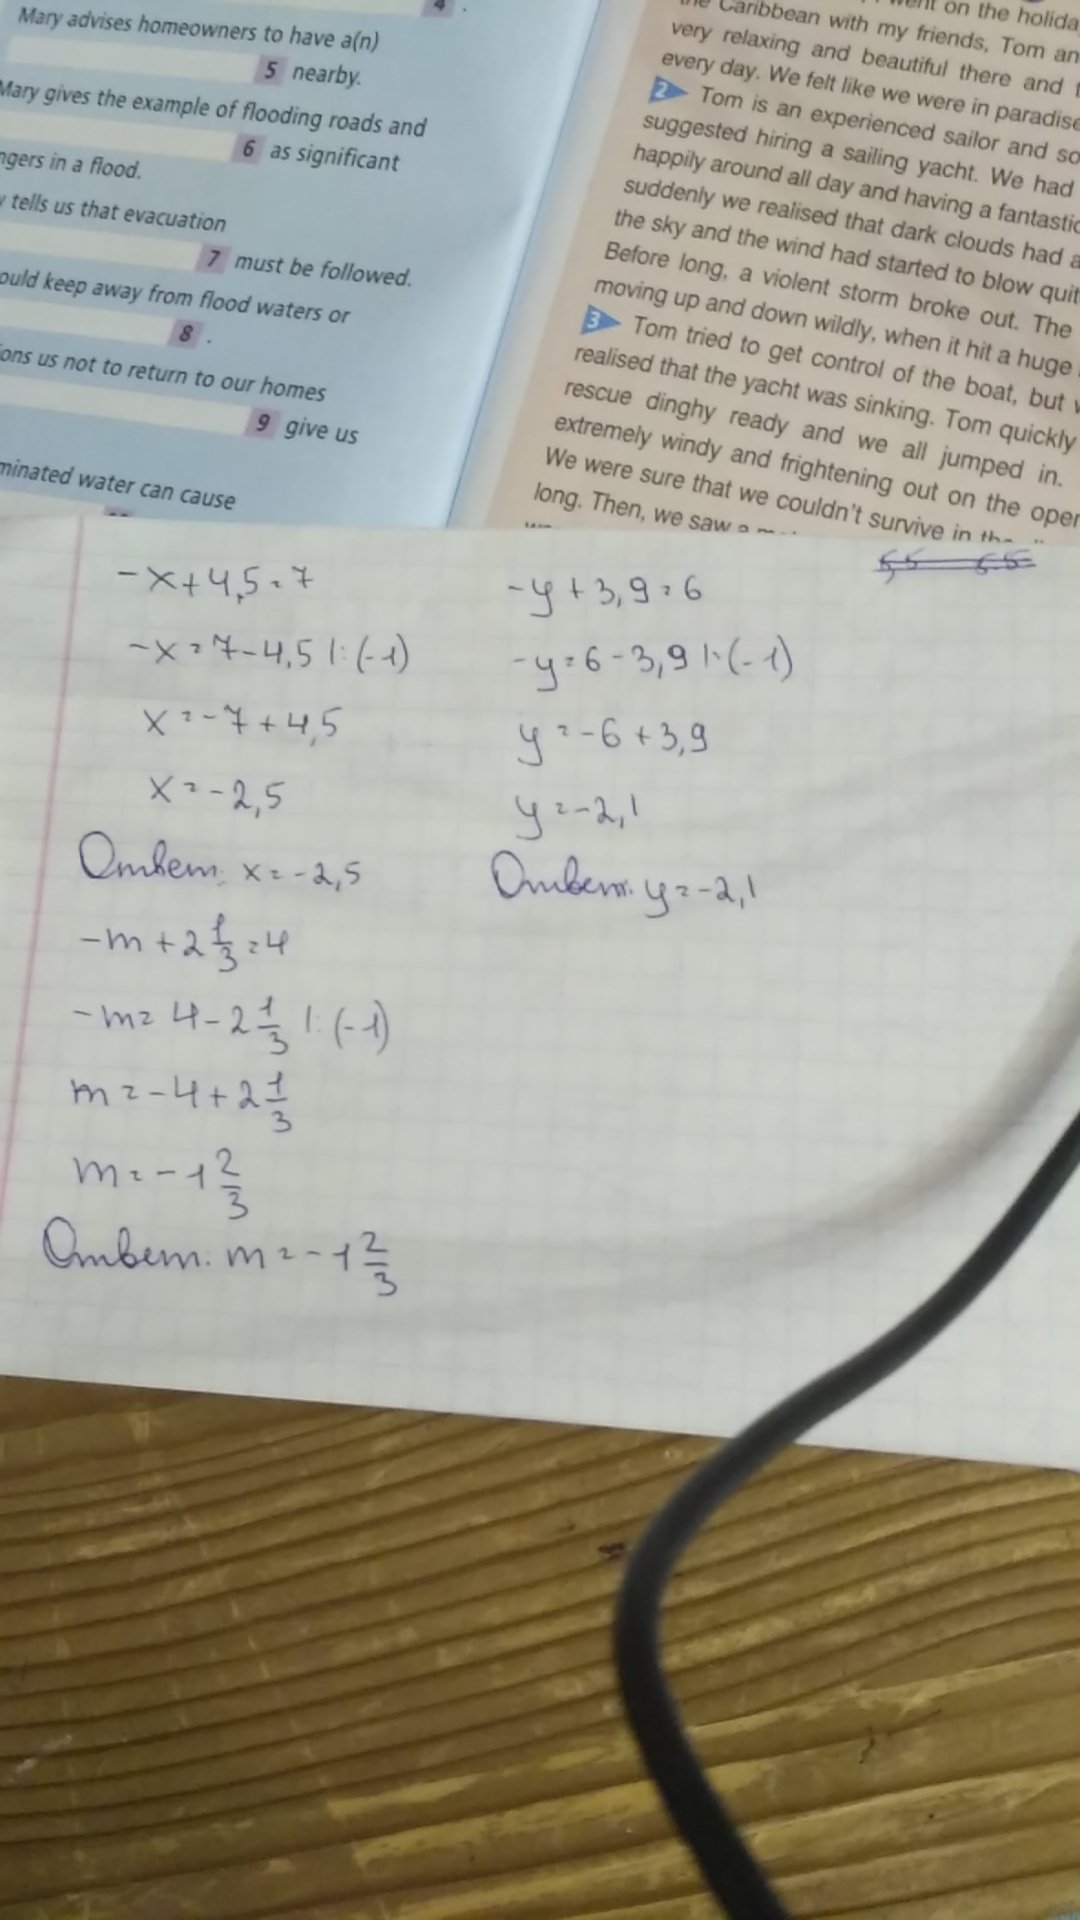 4 .
Mary advises homeowners to have a(n)
5 nearby.
Mary gives the example of flooding roads and
6 as significant
in a flood.
tells us that evacuation
7 must be followed.
keep away from flood waters or
8 .
us not to return to our homes
9 give us
water can cause
on the
Caribbean with my friends, Tom
very relaxing and beautiful there and
every day. We felt like we were in paradise
2 Tom is an experienced sailor and so
suggested hiring a sailing yacht. We had
happily around all day and having a fantastic
suddenly we realised that dark clouds had
the sky and the wind had started to blow
Before long, a violent storm broke out. The
moving up and down wildly, when it hit a huge
3 Tom tried to get control of the boat, but
realised that the yacht was sinking. Tom quickly
rescue dinghy ready and we all jumped in.
extremely windy and frightening out on the
We were sure that we couldn't survive in
long. Then, we saw a
-x+4,5=7
-x=7-4,5 |:(-1)
x=-7+4,5
x=-2,5
Ответ: x=-2,5
-m+2 1/3=4
-m=4-2 1/3 |:(-1)
m=-4+2 1/3
m=-1 2/3
Ответ: m=-1 2/3
-y+3,9=6
-y=6-3,9 |:(-1)
y=-6+3,9
y=-2,1
Ответ: y=-2,1